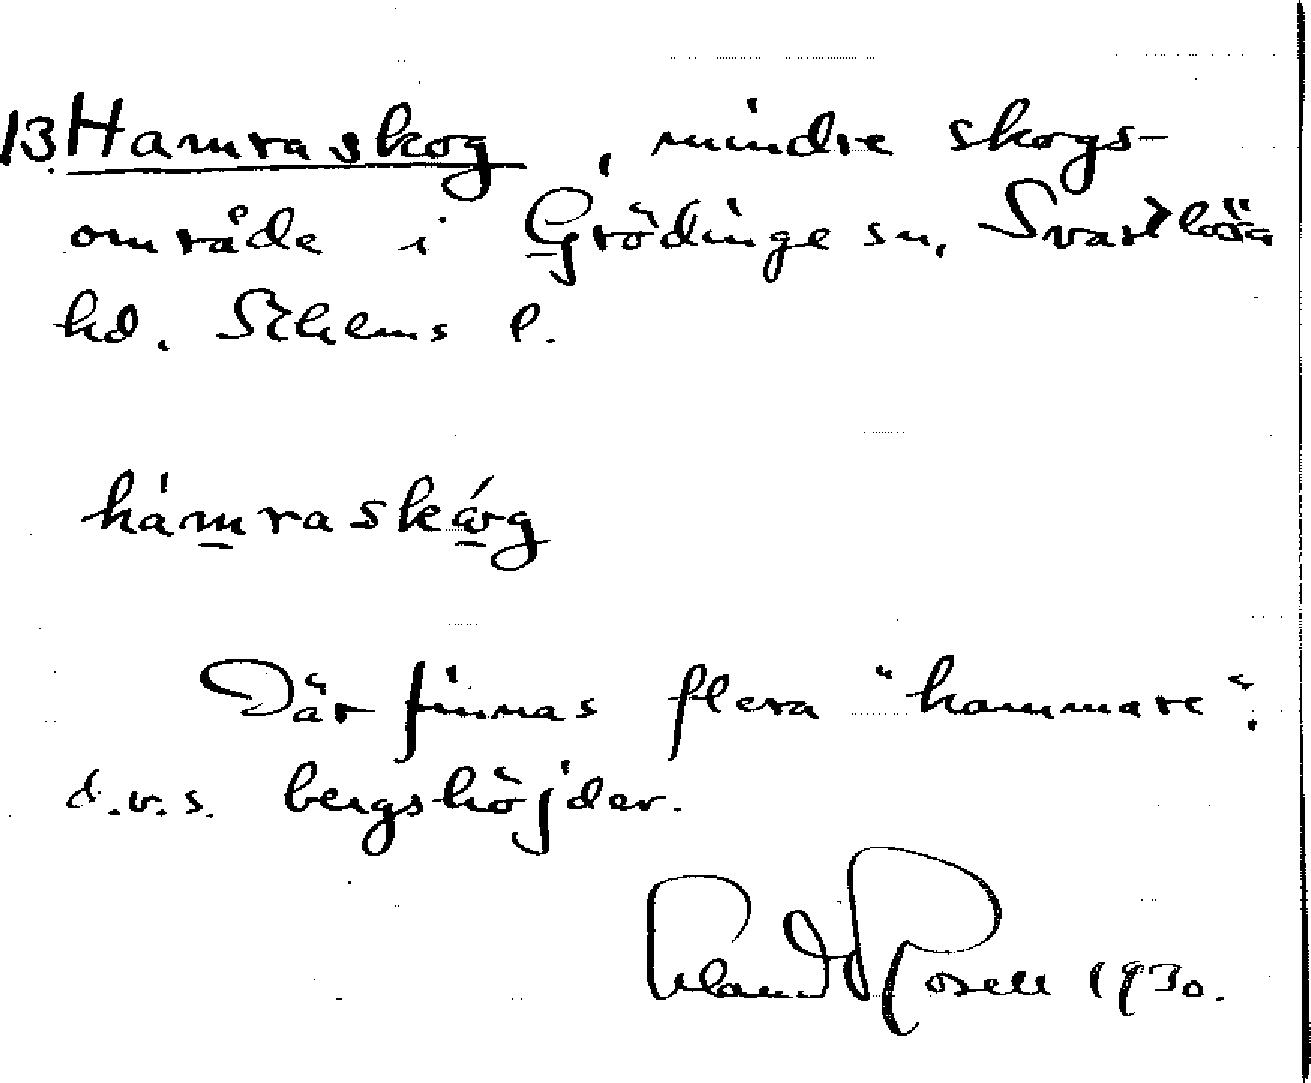 13. Hamraskog, mindre skogs-
område i Grödinge sn, Svartlösa
hd. Sthlms l.
hámraskåg
Där finnas flera "hammare",
d.v.s. bergshöjder.
Rosell 1930.